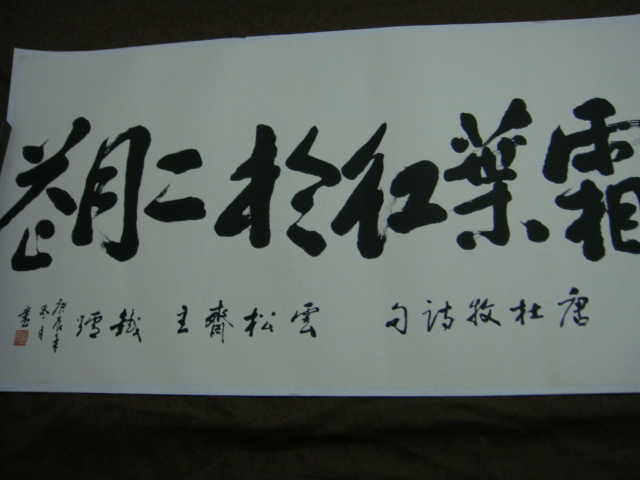 霜葉紅於二月花
唐杜牧詩句 雲松齋主 鐵
庚辰年
冬月
書